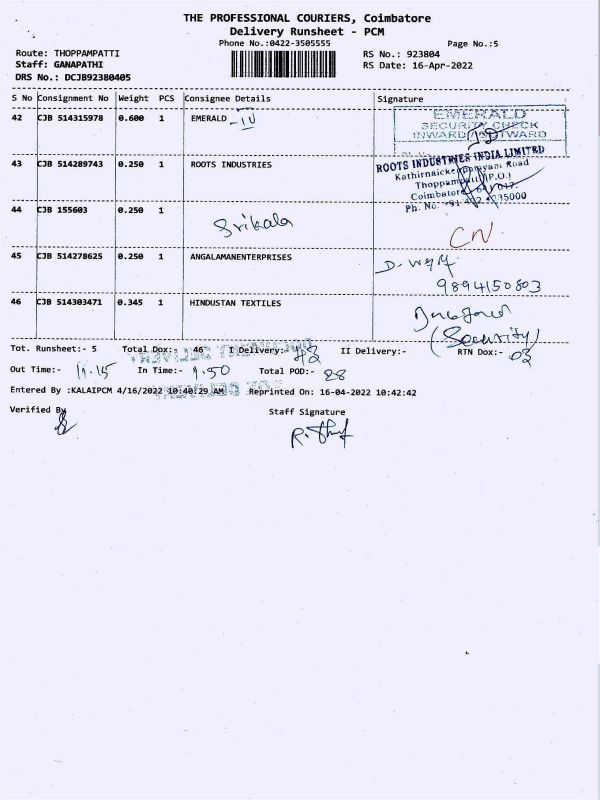 THE PROFESSIONAL COURIERS, Coimbatore
Delivery Runsheet - PCM
Phone No.:0422-3505555
Page No.:5
Route: THOPPAMPATTI
RS No.: 923804
Staff: GANAPATHI
RS Date: 16-Apr-2022
DRS No.: DCJB92380405
S No Consignment No Weight PCS Consignee Details Signature
42 CJB 514315978 0.600 1 EMERALD - IU
EMERALD
SECURITY CHECK
INWARD / OUTWARD
43 CJB 514289743 0.250 1 ROOTS INDUSTRIES
ROOTS INDUSTRIES INDIA LIMITED
Kathirnaickenpalayam Road
Thoppampatti (P.O.)
Coimbatore
Ph. No: +91
44 CJB 155603 0.250 1
Srikala
CN
45 CJB 514278625 0.250 1 ANGALAMANENTERPRISES
9894150803
46 CJB 514303471 0.345 1 HINDUSTAN TEXTILES
(Security)
Tot. Runsheet:- 5 Total Dox:- 46 I Delivery:- 43 II Delivery:- RTN Dox:- 03
Out Time:- 11.15 In Time:- 1.50 Total POD:- 28
Entered By :KALAIPCM 4/16/2022 10:40:29 AM Reprinted On: 16-04-2022 10:42:42
Verified By
Staff Signature